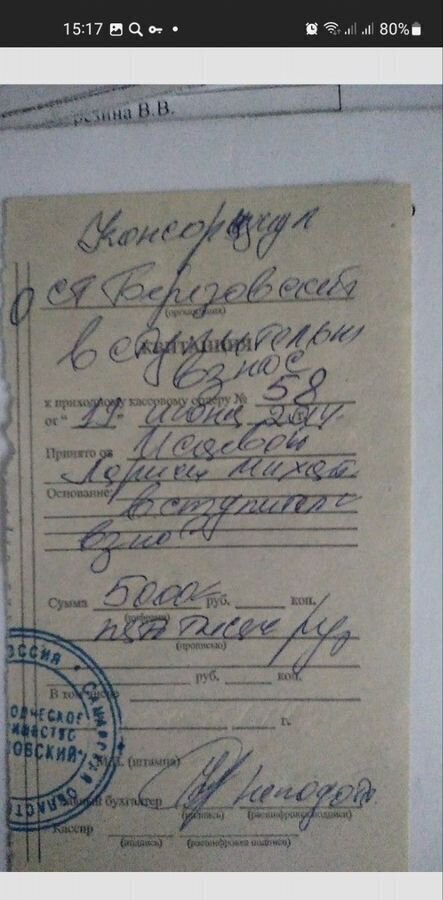 15:17
80%
резина В.В.
Консорциум
СТ Березовский
(организация)
вступительн
КВИТАНЦИЯ
взнос
к приходному кассовому ордеру № 58
от "19" июня 2014г.
Принято от Исаевой
Ларисы Михай
Основание: вступител
взнос
Сумма 5000= руб. коп.
(цифрами)
пять тысяч руб
(прописью)
руб. коп.
В том числе
г.
М.П. (штампа)
бухгалтер
(подпись) (расшифровка подписи)
Кассир
(подпись) (расшифровка подписи)
РОССИЯ * САМАРСКАЯ ОБЛАСТЬ
ОДЧЕСКОЕ
ИЩЕСТВО
ОВСКИЙ"